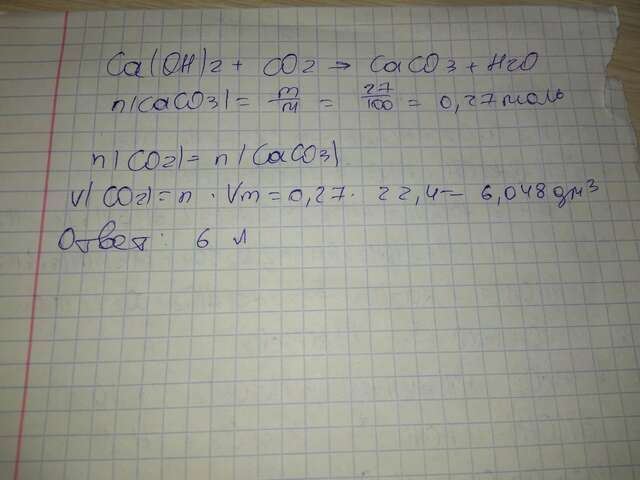 Ca(OH)2 + CO2 → CaCO3 + H2O
n(CaCO3) = m/M = 27/100 = 0,27 моль
n(CO2) = n(CaCO3)
V(CO2) = n · Vm = 0,27 · 22,4 = 6,048 дм³
Ответ: 6 л